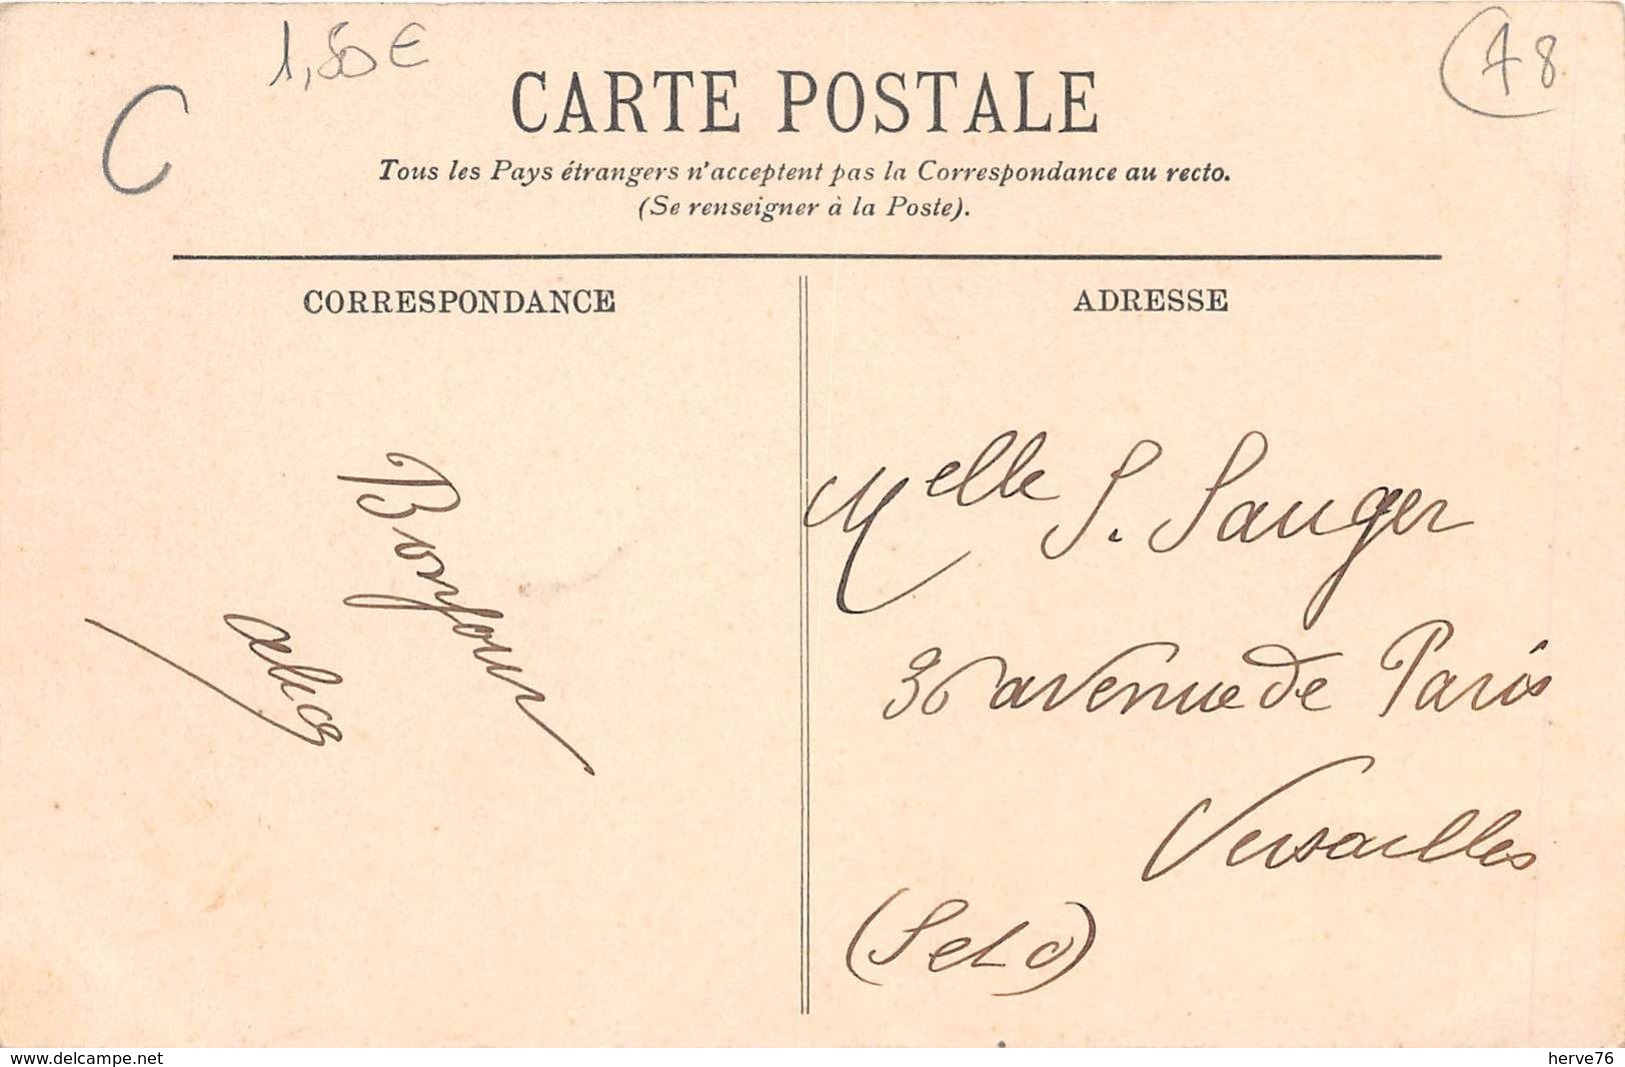 1,50€
C
78
CARTE POSTALE
Tous les Pays étrangers n'acceptent pas la Correspondance au recto.
(Se renseigner à la Poste).
CORRESPONDANCE
ADRESSE
Bonjour
Melle S. Sauger
36 avenue de Paris
Versailles
(S et O)
www.delcampe.net
herve76